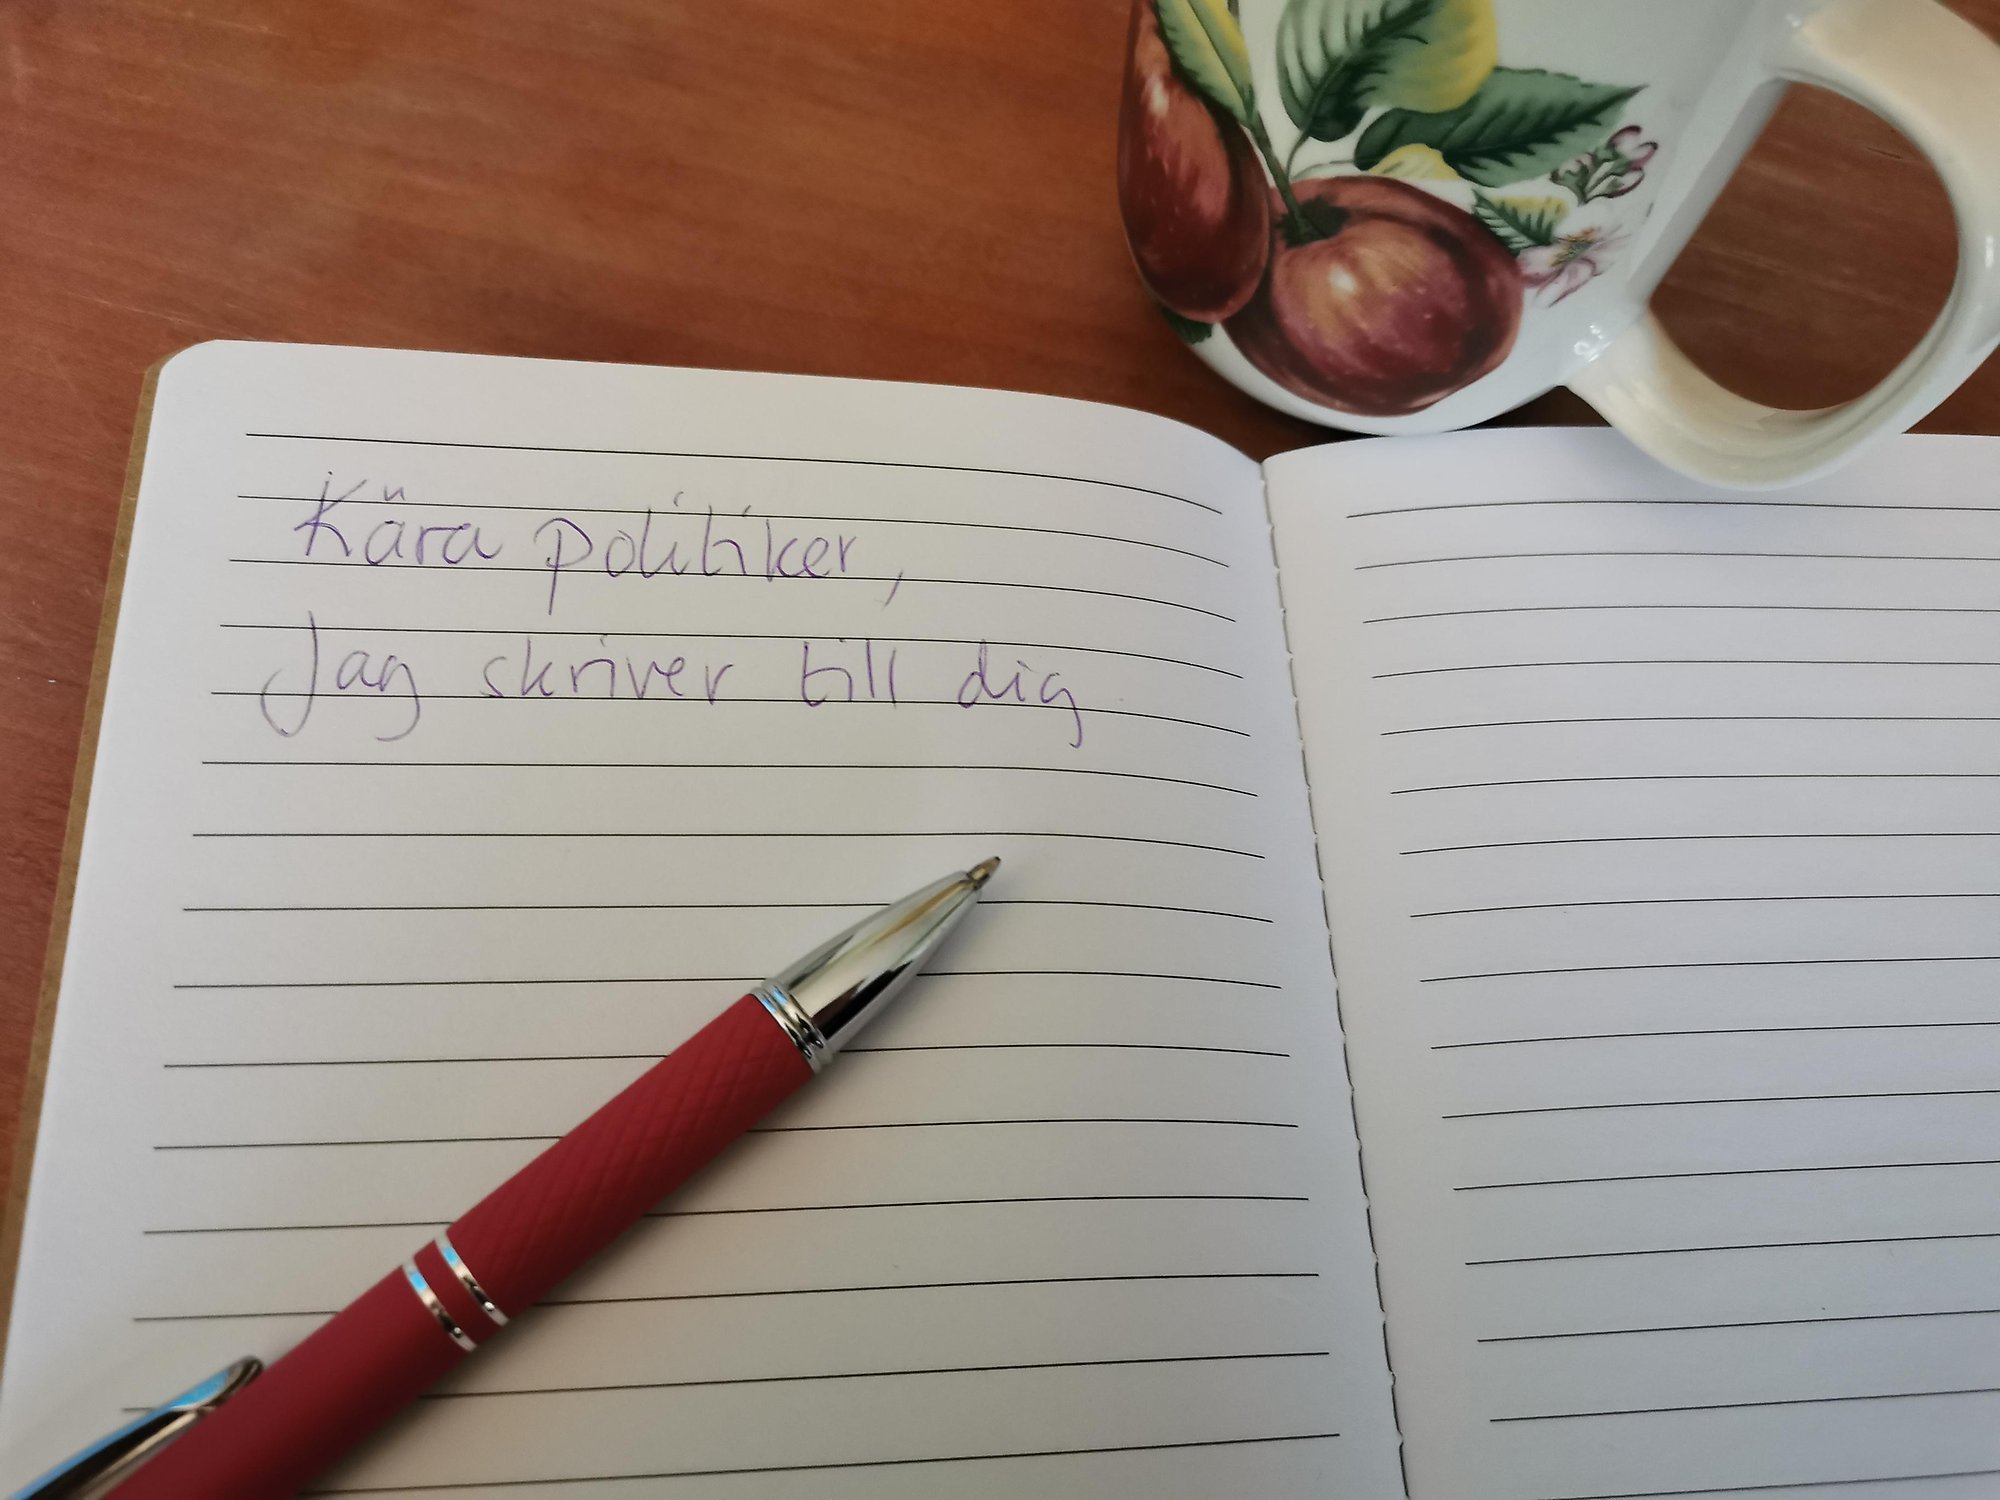 Kära politiker,
Jag skriver till dig